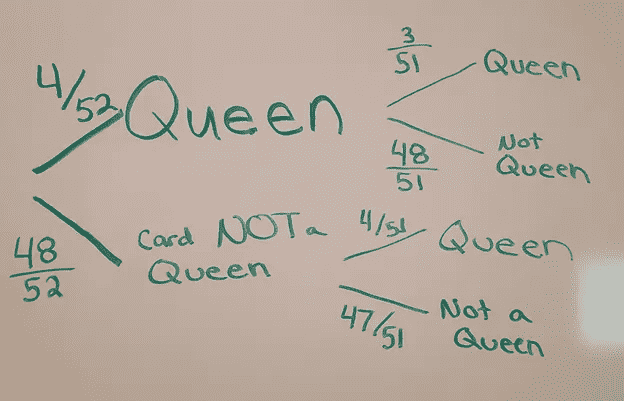 4/52 Queen
3/51 Queen
48/51 Not Queen
48/52 Card NOT a Queen
4/51 Queen
47/51 Not a Queen